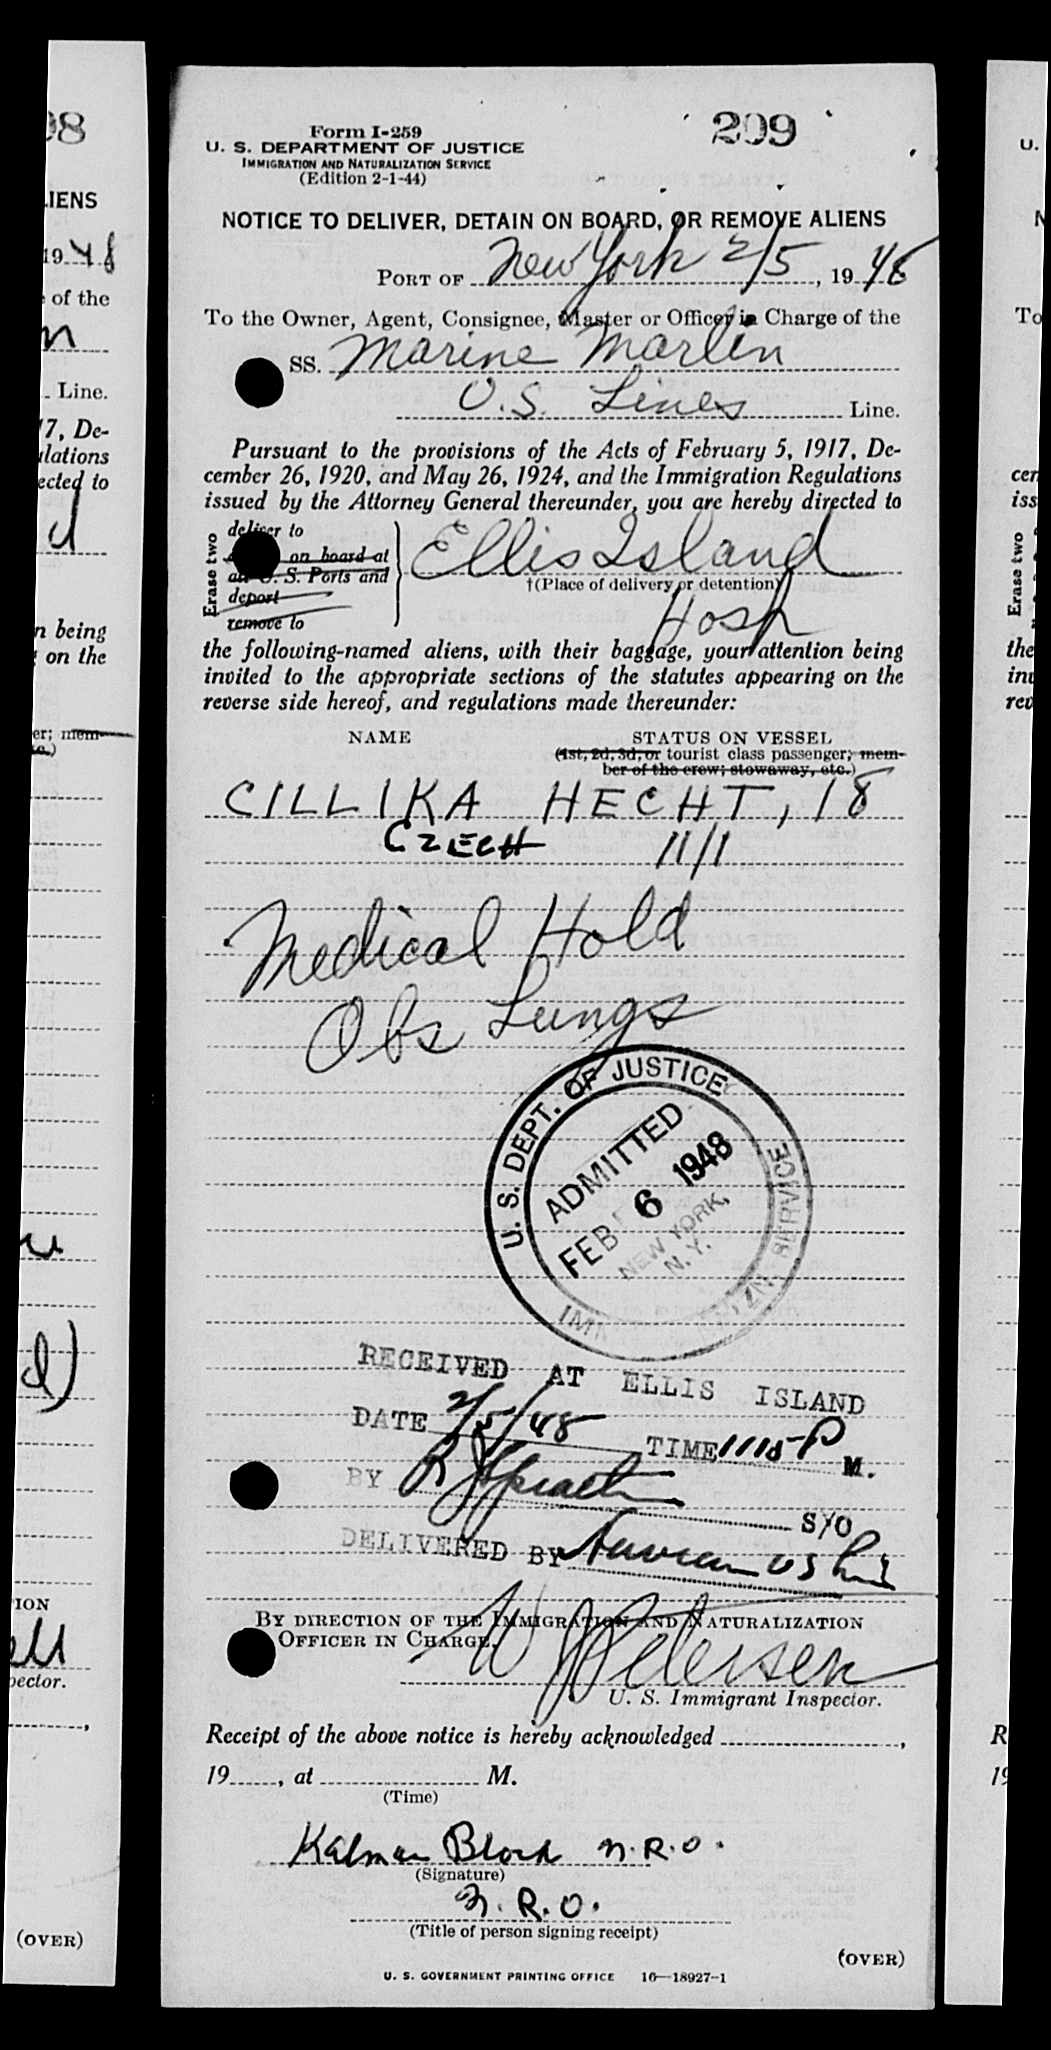 Form I-259
U. S. DEPARTMENT OF JUSTICE
IMMIGRATION AND NATURALIZATION SERVICE
(Edition 2-1-44)
209
NOTICE TO DELIVER, DETAIN ON BOARD, OR REMOVE ALIENS
PORT OF New York 2/5, 1948
To the Owner, Agent, Consignee, Master or Officer in Charge of the
SS. Marine Marlin
U.S. Lines Line.
Pursuant to the provisions of the Acts of February 5, 1917, De-
cember 26, 1920, and May 26, 1924, and the Immigration Regulations
issued by the Attorney General thereunder, you are hereby directed to
Erase two
deliver to
on board at
U. S. Ports and
deport
remove to
Ellis Island
†(Place of delivery or detention)
Hosp
the following-named aliens, with their baggage, your attention being
invited to the appropriate sections of the statutes appearing on the
reverse side hereof, and regulations made thereunder:
NAME STATUS ON VESSEL
(1st, 2d, 3d, or tourist class passenger; mem-
ber of the crew; stowaway, etc.)
CILLIKA HECHT, 18
CZECH 11/1
Medical Hold
Obs Lungs
U. S. DEPT. OF JUSTICE
ADMITTED
FEB 6 1948
NEW YORK,
N. Y.
SERVICE
RECEIVED AT ELLIS ISLAND
DATE 2/5/48 TIME 1115 P M.
BY
S/O
DELIVERED BY
BY DIRECTION OF THE IMMIGRATION AND NATURALIZATION
OFFICER IN CHARGE.
Petersen
U. S. Immigrant Inspector.
Receipt of the above notice is hereby acknowledged ,
19 , at M.
(Time)
Kalman Block N.R.O.
(Signature)
N.R.O.
(Title of person signing receipt)
(OVER)
U. S. GOVERNMENT PRINTING OFFICE 16—18927-1